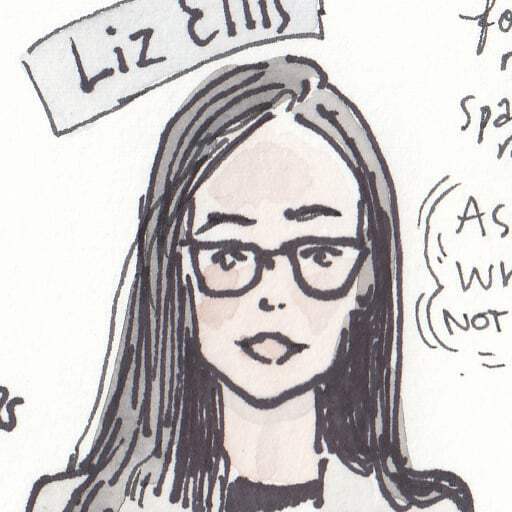 Liz Ellis
fo
spa
AS
WH
NOT